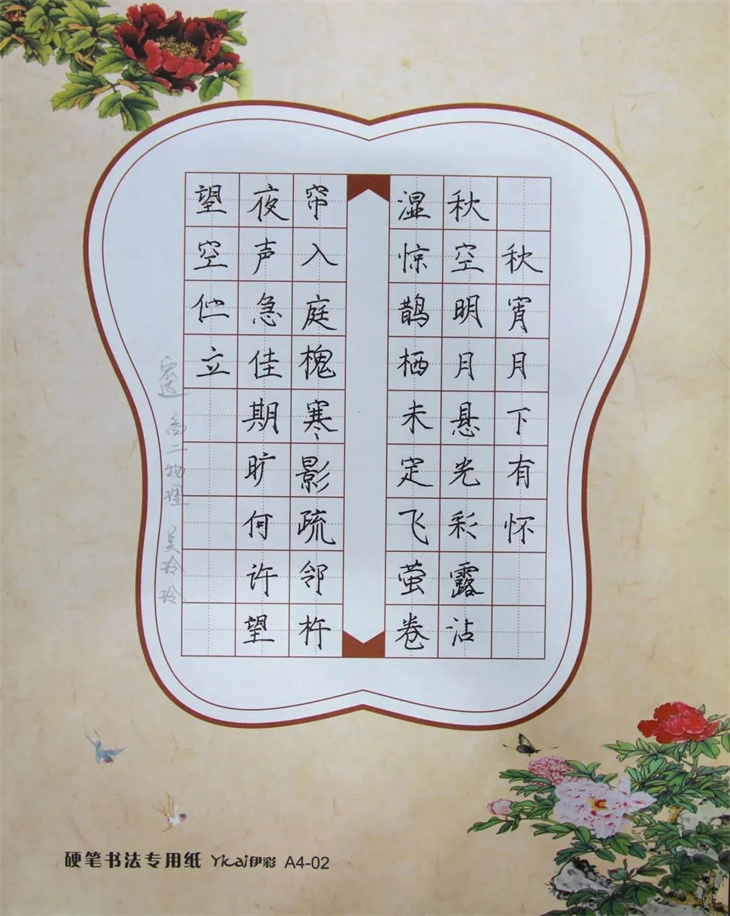 秋宵月下有怀
秋空明月悬光彩露沾
湿惊鹊栖未定飞萤卷
帘入庭槐寒影疏邻杵
夜声急佳期旷何许望
望空伫立
高二物理 吴玲玲
硬笔书法专用纸 Yicai伊彩 A4-02